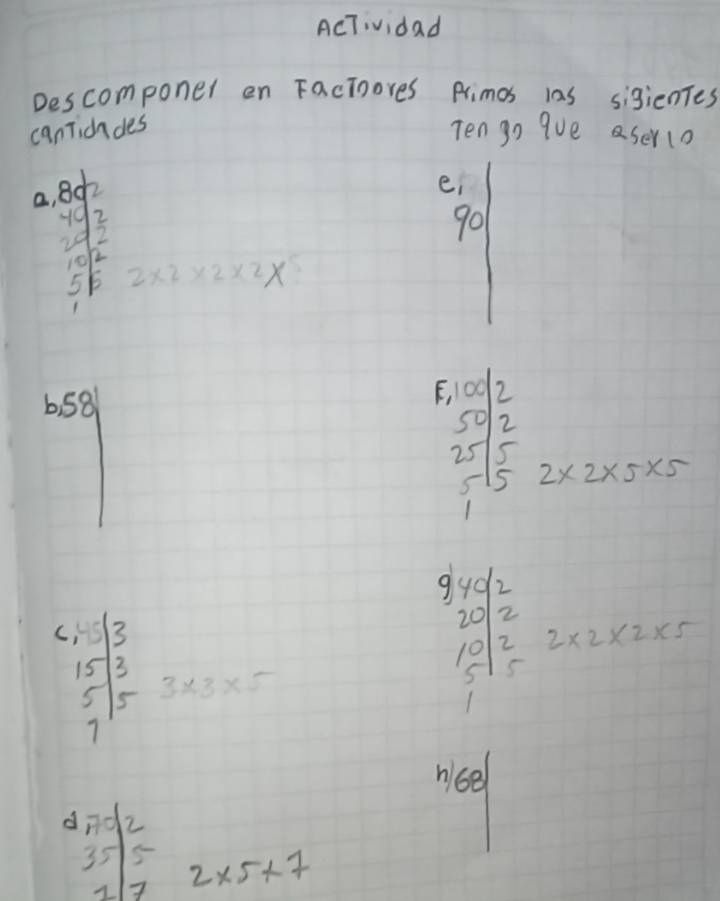 Actividad
Descomponer en Factoores Primos las sigientes
cantidades
Tengo que aserlo
a, 80 2
40 2
20 2
10 2
5 5 2×2×2×2×5
1
b, 58
c, 45 3
15 3
5 5 3×3×5
1
d, 70 2
35 5
7 7 2×5×7
e,
90
F, 100 2
50 2
25 5
5 5 2×2×5×5
1
g) 40 2
20 2
10 2 2×2×2×5
5 5
1
h) 68